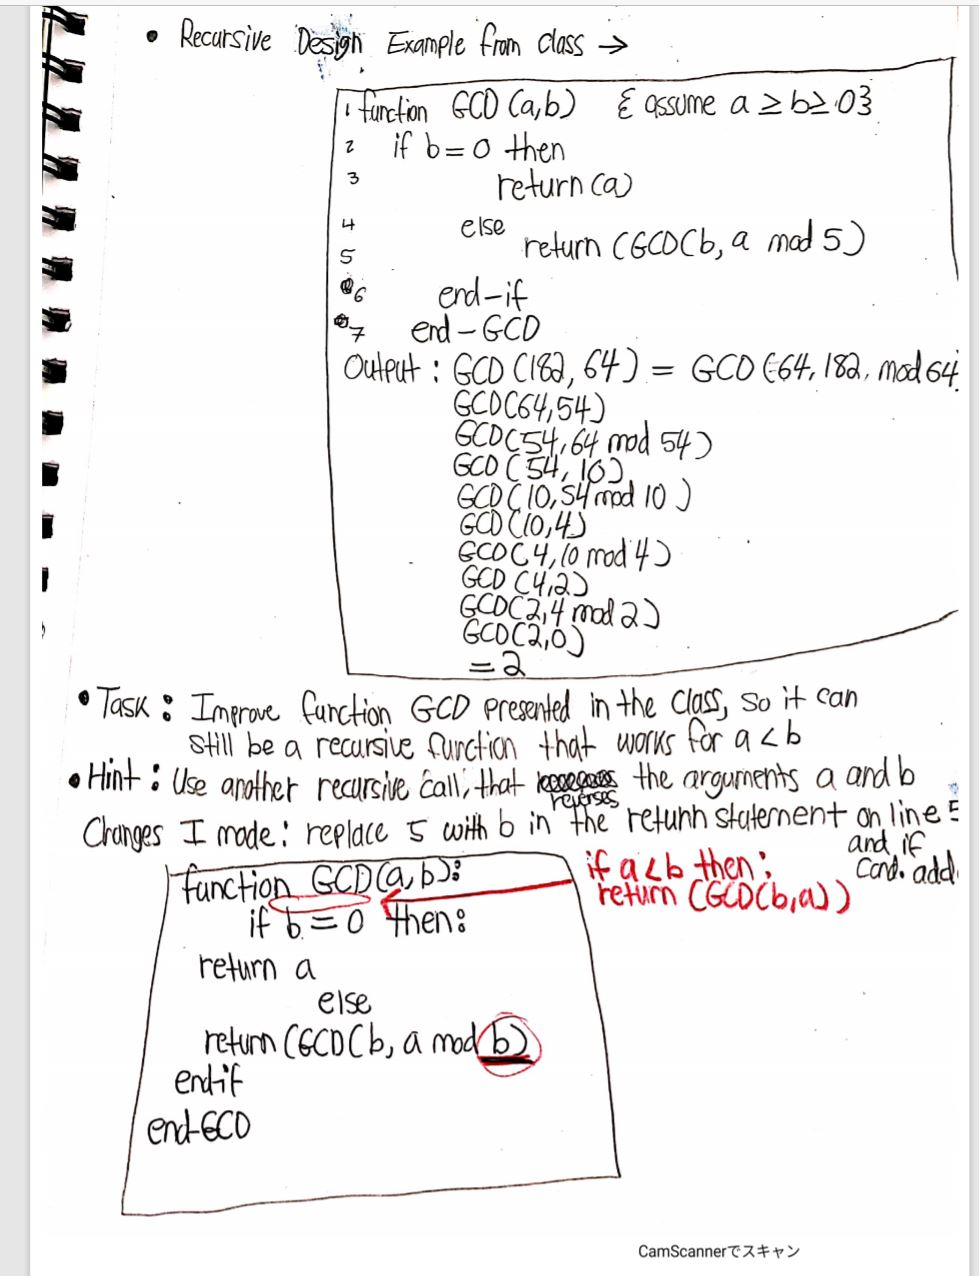 • Recursive Design Example from class →
1 function GCD (a,b) { assume a ≥ b ≥ 0}
2 if b = 0 then
3 return (a)
4 else
5 return (GCD(b, a mod 5)
6 end-if
7 end-GCD
Output : GCD (182, 64) = GCD (64, 182, mod 64
GCD(64,54)
GCD(54,64 mod 54)
GCD (54, 10)
GCD(10,54 mod 10 )
GCD(10,4)
GCD(4,10 mod 4)
GCD (4,2)
GCD(2,4 mod 2)
GCD(2,0)
= 2
• Task : Improve function GCD presented in the class, so it can
still be a recursive function that works for a < b
• Hint : Use another recursive call, that reverses the arguments a and b
Changes I made: replace 5 with b in the return statement on line 5
and if
cond. add
if a < b then :
return (GCD(b,a))
function GCD(a,b):
if b = 0 then:
return a
else
return (GCD(b, a mod b)
end-if
end-GCD
CamScannerでスキャン